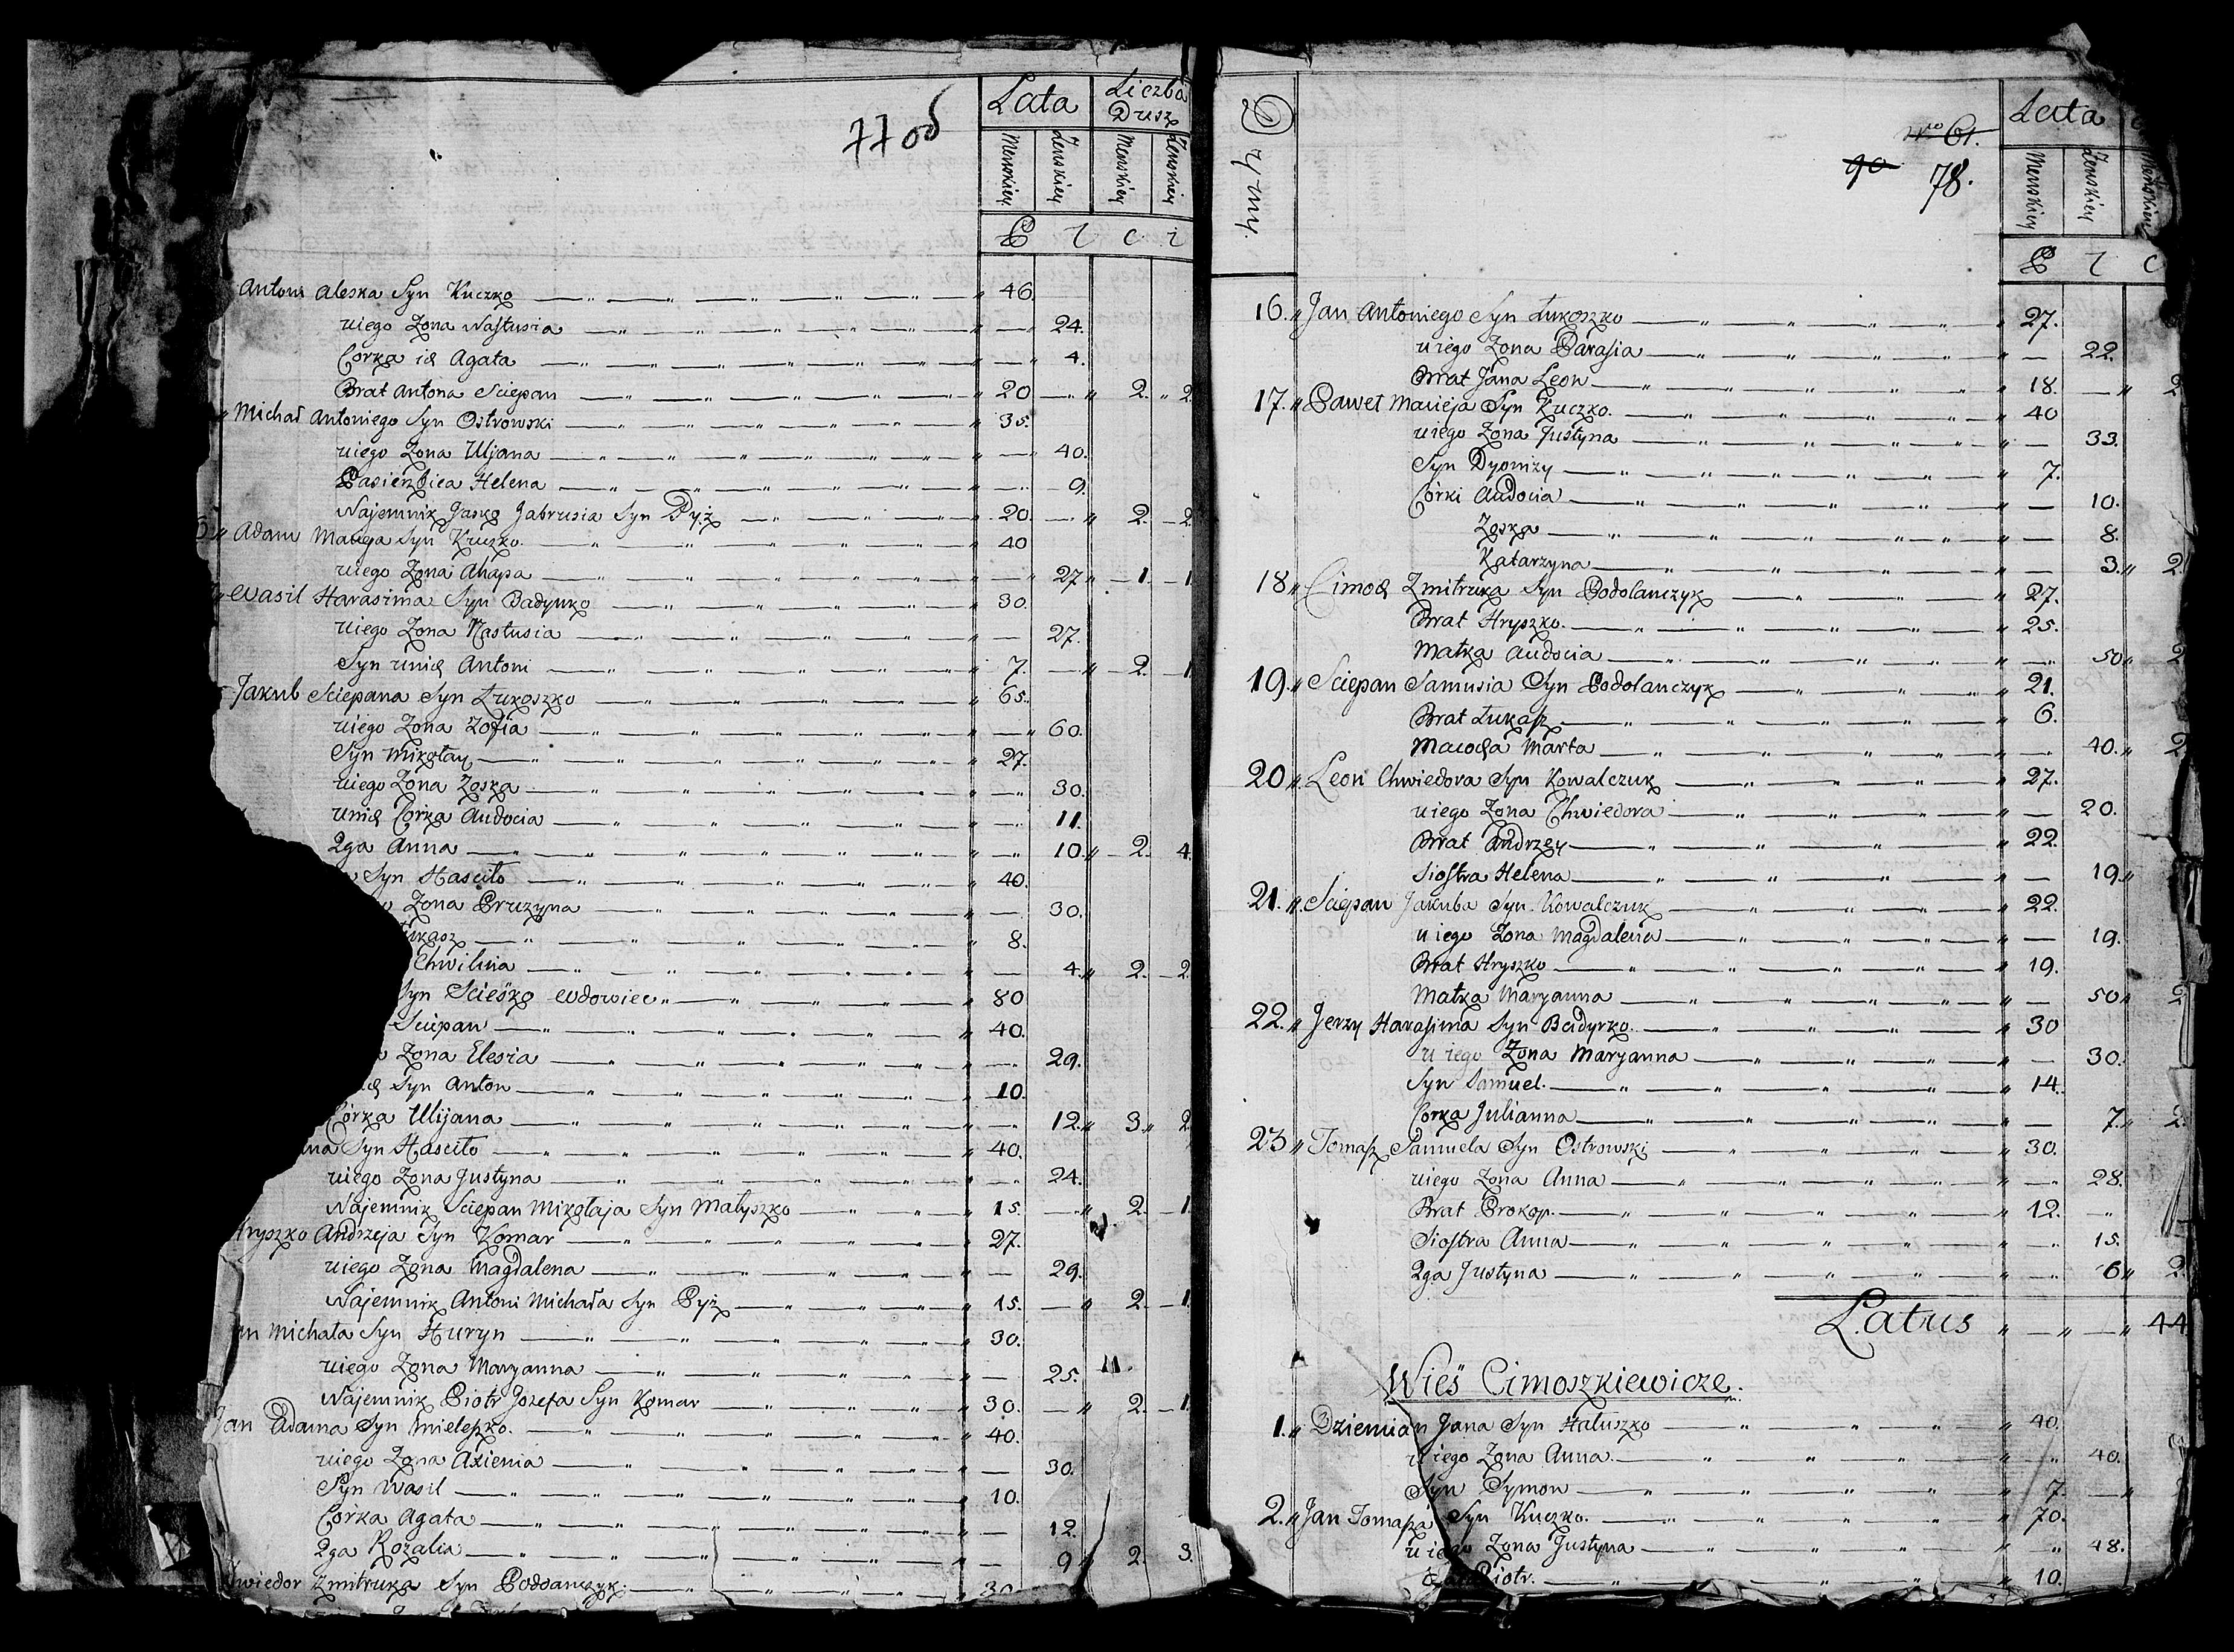 77 об
Lata
Liczba Dusz
Męskiey Żenskiey Męskiey Żenskiey
P l c i
Antoni Aleska Syn Kuczko 46.
u iego Zona Nastusia 24.
Corka ich Agata 4.
Brat Antona Sciepan 20 2. 2
Michał Antoniego Syn Ostrowski 35.
u iego Zona Uljana 40.
Pasierbica Helena 9.
Najemnik Jasko Jabrusia Syn Pyż 20. 2. 2
Adam Syn Kuczko. 40
u iego Zona Ahapa 27 1. 1
Wasil Harasima Syn Badynko 30.
u iego Zona Nastusia 27.
Syn u nich Antoni 7. 2. 1
Jakub Sciepana Syn Łukoszko 65.
u iego Zona Zofia 60.
Syn Mikołay 27.
u iego Zona Zoska 30.
u nich Corka Audocia 11.
2ga Anna 10. 2. 4.
Syn Hasciło 40.
Zona Pruzyna 30.
8.
Chwilina 4. 2. 2.
Syn Scieśko Wdowiec 80
Sciepan 40.
Zona Elesia 29.
Syn Anton 10.
Córka Ulijana 12. 3. 2
Syn Hasciło 40.
u iego Zona Justyna 24.
Najemnik Sciepan Mikołaja Syn Małyszko 15. 2. 1.
Hryszko Andrzeja Syn Komar 27.
u iego Zona Magdalena 29.
Najemnik Antoni Michała Syn Pyż 15. 2. 1.
Michała Syn Huryn 30.
u iego Zona Maryanna 25.
Najemnik Piotr Jozefa Syn Komar 30. 2. 1.
Jan Adama Syn Mieleszko. 40.
u iego Zona Axienia 30.
Syn Wasil 10.
Córka Agata 12.
2ga Rozalia 9 2. 3.
Chwiedor Zmitruka Syn 30
Dymy.
61.
90 78.
Lata
Męskiey Żenskiey Męskiey
P l c
16. Jan Antoniego Syn Łukoszko 27.
u iego Zona Parasia 22.
Brat Jana Leon 18. 2
17. Paweł Macieja Syn Kuczko. 40
u iego Zona Justyna 33.
Syn Dyonizy 7.
Córki Audocia 10.
Zoska 8.
Katarzyna 3. 2.
18 Cimoch Zmitruka Syn Podolanczyk 27.
Brat Hryszko. 25.
Matka Audocia 50 2
19. Sciepan Samusia Syn Podolanczyk 21.
Brat Łukasz 6.
Macocha Marta 40. 2
20 Leon Chwiedora Syn Kowalczuk 27.
u iego Zona Chwiedora 20.
Brat Andrzey 22.
Siostra Helena 19.
21. Sciepan Jakuba Syn Kowalczuk 22.
u iego Zona Magdalena 19.
Brat Hryszko 19.
Matka Maryanna 50 2
22. Jerzy Harasima Syn Badyrko. 30
u iego Zona Maryanna 30.
Syn Samuel. 14.
Corka Julianna 7. 2.
23 Tomasz Samuela Syn Ostrowski 30.
u iego Zona Anna 28.
Brat Prokop. 12.
Siostra Anna 15.
2ga Justyna 6 2.
Latus 44
Wieś Cimoszkiewicze.
1. Dziemian Jana Syn Hałuszko 40.
u iego Zona Anna. 40.
Syn Symon 7.
2. Jan Tomasza Syn Kuczko. 70.
u iego Zona Justyna 48.
Piotr. 10.